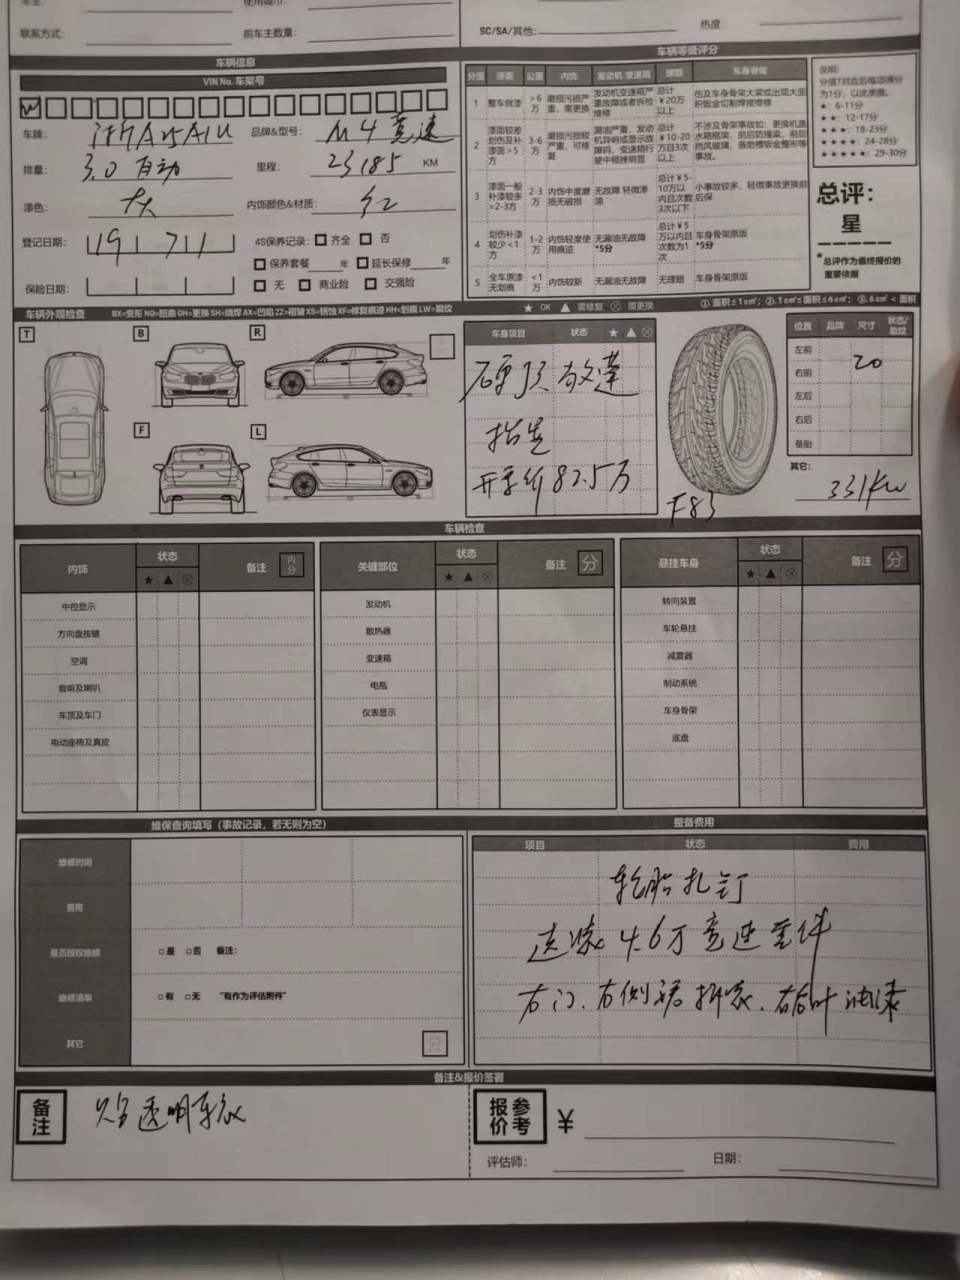 联系方式:
前车主数量:
SC/SA/其他:
热度:
车辆信息
VIN No. 车架号
车牌:
品牌&型号: M4 竞速
排量: 3.0 自动
里程: 23185 KM
漆色: 灰
内饰颜色&材质: 红
登记日期: 19 7 11
4S保养记录: 齐全 否
保养套餐 年 延长保修 年
保险日期:
无 商业险 交强险
车辆等级评分
分值 漆面 公里 内饰 发动机 变速箱 理赔 车身骨架
1 整车做漆 >6万 磨损污损严重、需更换 发动机变速箱严重故障或者拆检维修 总计￥20万以上 伤及车身骨架大梁或出现大面积钣金切割焊接维修
2 漆面较差 划伤及补漆面>5方 3-6万 磨损污损较严重，可修复 漏油严重、发动机异响或显示故障码、变速箱行驶中顿挫明显 总计￥10-20万目3次以上 不涉及骨架事故如：更换机盖水箱框架，前后防撞梁，前后挡风玻璃、备胎槽钣金整形等事故。
3 漆面一般 补漆较多=2-3方 2-3万 内饰中度磨损无破损 无故障 轻微渗油 总计￥5-10万以内且次数3次以下 小事故较多、轻微事故更换前后保
4 划伤补漆较少<1方 1-2万 内饰轻度使用痕迹 无漏油无故障 *5分 总计￥5万以内且次数为1次 车身骨架原版 *5分
5 全车原漆无划痕 <1万 内饰较新 无漏油无故障 无理赔 车身骨架原版
说明:
分值1对应后每项得分为1分，以此类推。
★: 6-11分
★★: 12-17分
★★★: 18-23分
★★★★: 24-28分
★★★★★: 29-30分
总评:
星
*总评作为最终报价的重要依据
车辆外观检查 BX=变形 NQ=扭曲 GH=更换 SH=烧焊 AX=凹陷 ZZ=褶皱 XS=锈蚀 XF=修复痕迹 HH=划痕 LW=裂纹
★ OK ▲ 需修复 ⊗ 需更换
①. 面积≤1c㎡; ②. 1c㎡≤面积≤6c㎡; ③. 6c㎡<面积
T B R
F L
车身项目 状态 ★ ▲ ⊗
硬顶敞篷
指导
开票价 82.5万
F83
位置 品牌 尺寸 状态/胎纹
左前
右前 20
左后
右后
备胎
其它:
331Kw
车辆检查
内饰 状态 备注 内分
★ ▲ ⊗
中控显示
方向盘按键
空调
音响及喇叭
车顶及车门
电动座椅及真皮
关键部位 状态 备注 分
★ ▲ ⊗
发动机
散热器
变速箱
电瓶
仪表显示
悬挂车身 状态 备注 分
★ ▲ ⊗
转向装置
车轮悬挂
减震器
制动系统
车身骨架
底盘
维保查询填写（事故记录，若无则为空）
维修时间
费用
是否授权维修 □是 □否 备注:
维修清单 □有 □无 "有作为评估附件"
其它
分
整备费用
项目 状态 费用
轮胎扎钉
选装 4.6万 竞速套件
右门、右侧裙 拆喷、右后叶 油漆
备注&报价签署
备注
透明车衣
报价参考 ￥
评估师:
日期: